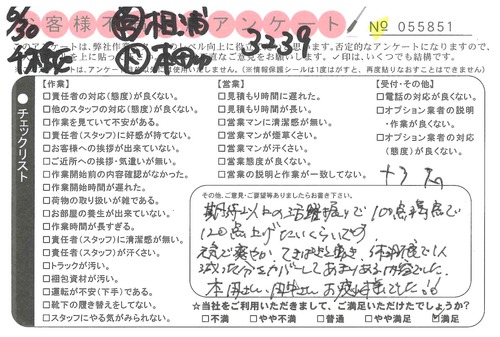 5/30
千株
お客様不満足アンケート
営 相浦
本田
3239
№ 055851
このアンケートは、弊社作業
のレベル向上に役立
思います。否定的なアンケートになりますので、
ご意見をお願いします。✓印は、いくつでも結構です。
(※情報保護シールは1度はがすと、再度貼りなおすことはできません)
チェックリスト
【作業】
□責任者の対応(態度)が良くない。
□他のスタッフの対応(態度)が良くない。
□作業を見ていて不安がある。
□責任者(スタッフ)に好感が持てない。
□お客様への挨拶が出来ていない。
□ご近所への挨拶・気遣いが無い。
□作業開始前の内容確認がなかった。
□作業開始時間が遅れた。
□荷物の取り扱いが雑である。
□お部屋の養生が出来ていない。
□作業時間が長すぎる。
□責任者(スタッフ)に清潔感が無い。
□責任者(スタッフ)が汗くさい。
□トラックが汚い。
□梱包資材が汚い。
□運転が不安(下手)である。
□靴下の履き替えをしてない。
□スタッフにやる気がみられない。
【営業】
□見積もり時間に遅れた。
□見積もり時間が長い。
□営業マンに清潔感が無い。
□営業マンが煙草くさい。
□営業マンが汗くさい。
□営業態度が良くない。
□営業の説明と作業が一致してない。
【受付・その他】
□電話の対応が良くない。
□オプション業者の説明
・作業が良くない。
□オプション業者の対応
(態度)が良くない。
その他、ご意見・ご要望等ありましたらお書き下さい。
期待以上の活躍振りで100点満点で
120点上げたいくらいです。
元気で爽やか、てきぱきと動き、体調不良で1人
減った分をカバーしてあまりある内容でした。
本田さん、田中さんお疲れ様でした!!
☆当社をご利用いただきまして、ご満足いただけたでしょうか？
□不満 □やや不満 □普通 □やや満足 ☑満足